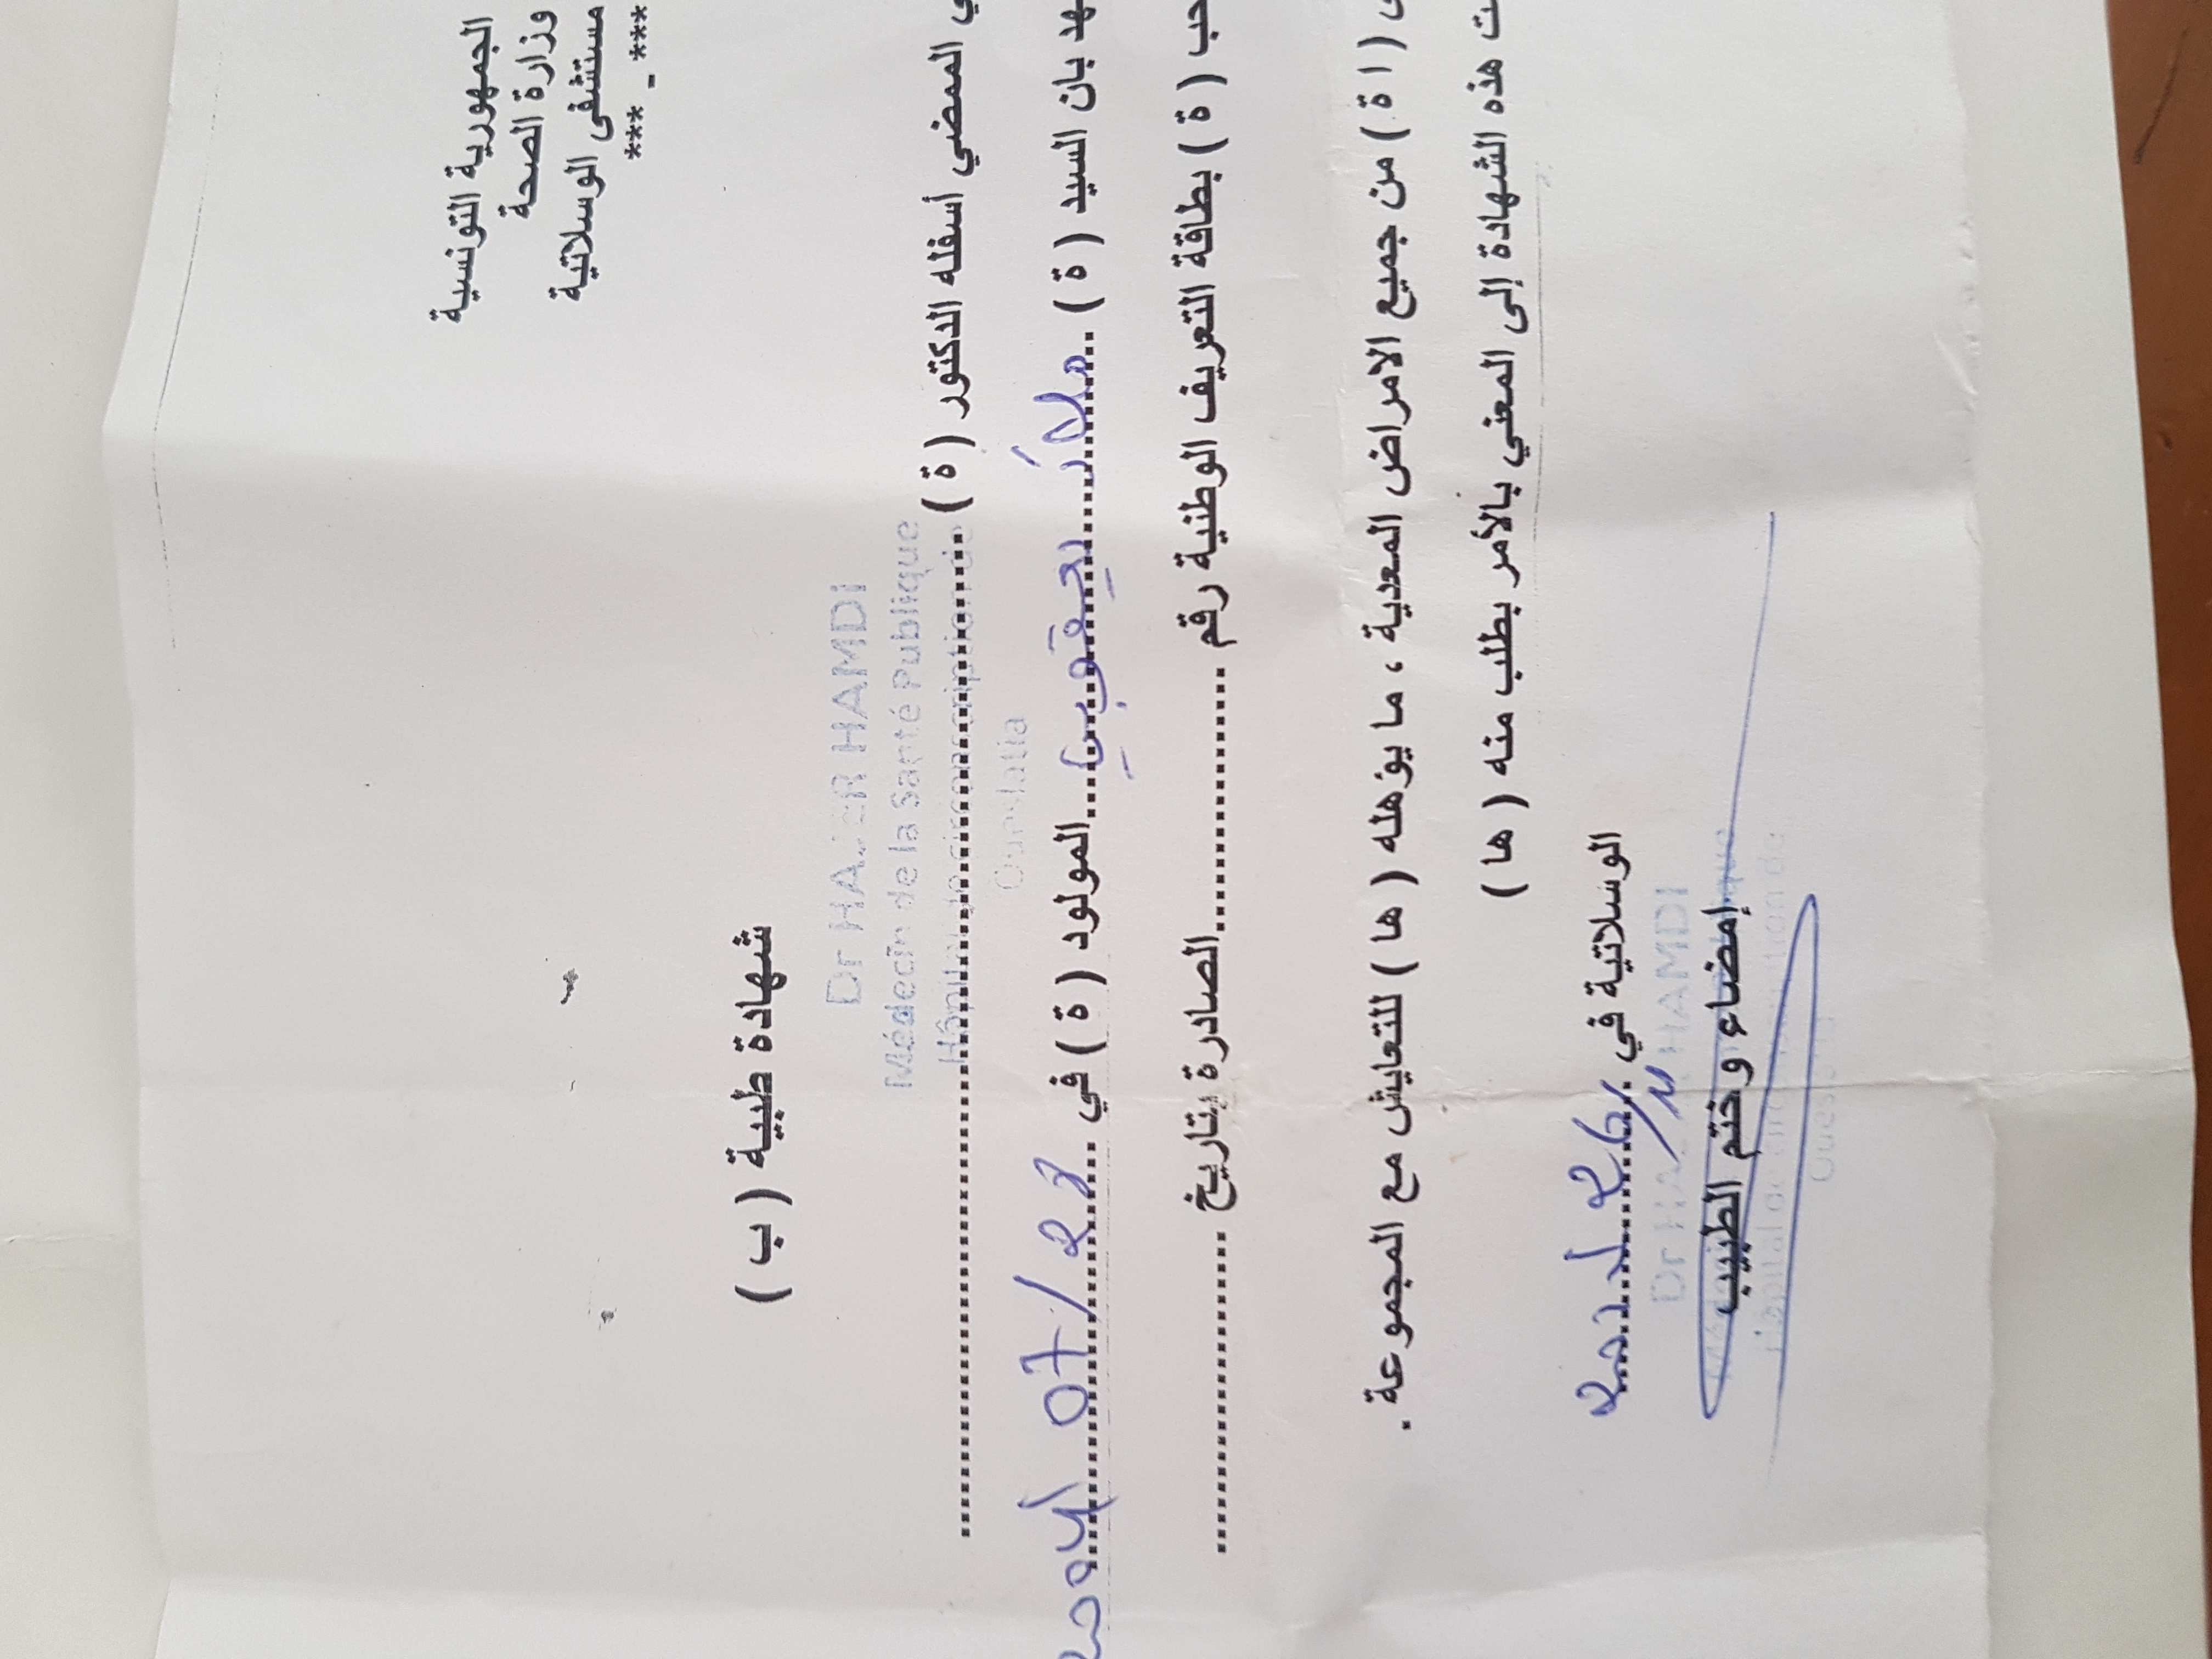 الجمهورية التونسية
وزارة الصحة
مستشفى الوسلاتية
***_***
شهادة طبية ( ب )
Dr HAJER HAMDI
Médecin de la Santé Publique
Hôpital de circonscription de
Oueslatia
ي الممضي أسفله الدكتور ( ة ) ........................................
هد بان السيد ( ة ) ..ملاك يعقوبي...المولود ( ة ) في ..
حب ( ة ) بطاقة التعريف الوطنية رقم ....................الصادرة بتاريخ ....................
( ا ة ) من جميع الامراض المعدية ، ما يؤهله ( ها ) للتعايش مع المجموعة .
ت هذه الشهادة إلى المعني بالأمر بطلب منه ( ها )
الوسلاتية في
Dr HAJER HAMDI
إمضاء و ختم الطبيب